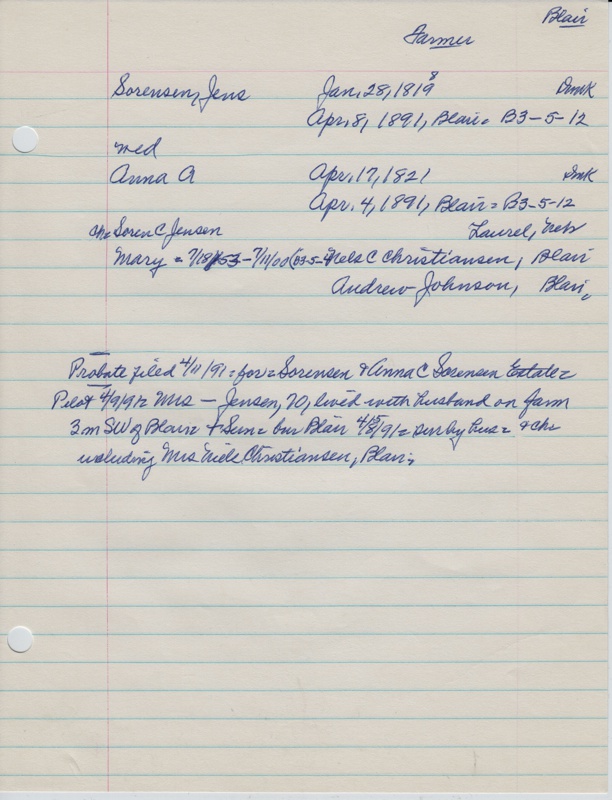 Blair
Farmer
Sorensen, Jens Jan. 28, 1819 8 Dmk
Apr. 8, 1891, Blair = B3-5-12
med
Anna A Apr. 17, 1821 Dmk
Apr. 4, 1891, Blair = B3-5-12
ch = Soren C Jensen Laurel, Neb
Mary = 7/18/53 - 7/11/00 (B3-5-4) Nels C Christiansen, Blair
Andrew Johnson, Blair,
Probate filed 4/11/91 = for = Sorensen & Anna C Sorensen Estate =
Pilot 4/9/91 = Mrs — Jensen, 70, lived with husband on farm
3 m SW of Blair = + Sun = bur Blair 4/5/91 = sur by hus = & chs
including Mrs Niels Christiansen, Blair,